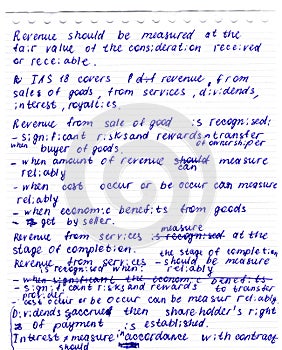 Revenue should be measured at the
fair value of the consideration received
or receiable.
IAS 18 covers revenue, from
sales of goods, from services, dividends,
interest, royalties.
Revenue from sale of good is recognised:
- significant risks and rewards transfer
when buyer of goods, of ownership er
- when amount of revenue should can measure
reliably
- when cost occur or be occur can measure
reliably
- when economic benefits from goods
- get by seller.
measure
Revenue from services is recognised at the
stage of completion. the stage of completion
Revenue from services - should be measure
is recognised when: reliably
- when significant the economic benefits
- significant risks and rewards to transfer
- cost occur or be occur can be measur reliably.
Dividends accrued then shareholder's right
of payment is established.
Interest measure in accordance with contract
should